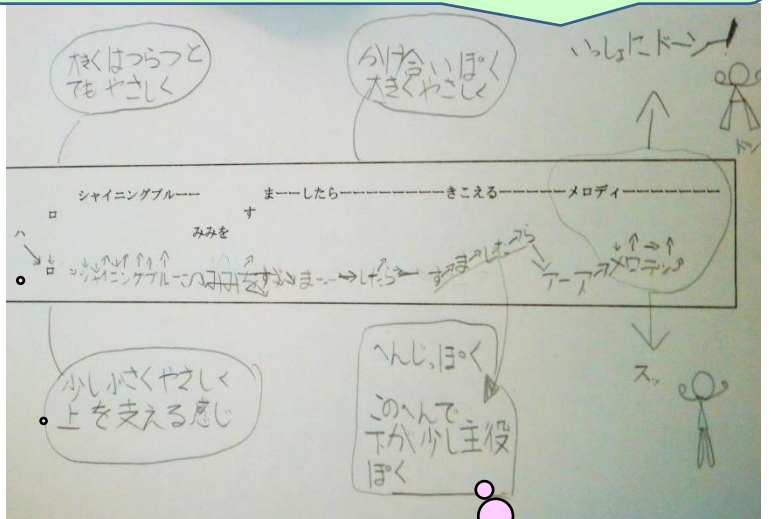 大きくはつらつと
でもやさしく
かけ合いぽく
大きくやさしく
いっしょにドーン!
ドン
シャイニングブルーー
まーーしたらーーーーーーーきこえるーーーーーメロディーーーーーーー
ロ
す
ハ
みみを
ロ
シャイニングブルー
まー→したらー
すましたら
アーア
メロディ
少し小さくやさしく
上を支える感じ
へんじっぽく
このへんで
下が少し主役
ぽく
スッ